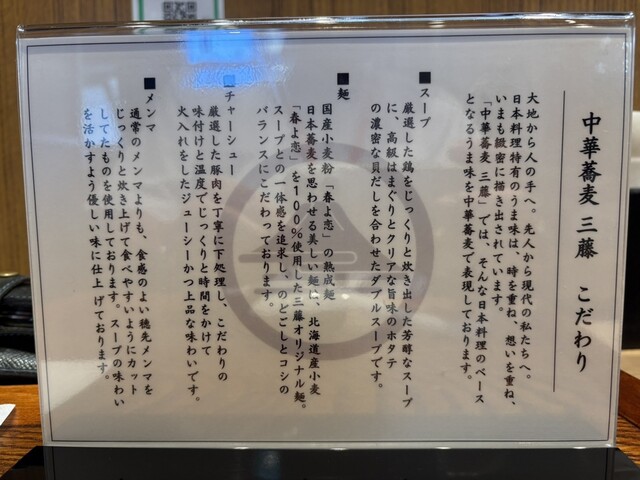 中華蕎麦 三藤 こだわり
大地から人の手へ。先人から現代の私たちへ。
日本料理特有のうま味は、時を重ね、想いを重ね、
いまも緻密に描き出されています。
「中華蕎麦 三藤」では、そんな日本料理のベース
となるうま味を中華蕎麦で表現しております。
■スープ
厳選した鶏をじっくりと炊き出した芳醇なスープ
に、高級はまぐりとクリアな旨味のホタテ
の濃密な貝だしを合わせたダブルスープです。
■麺
国産小麦粉「春よ恋」の熟成麺
日本蕎麦を思わせる美しい麺は、北海道産小麦
「春よ恋」を100%使用した三藤オリジナル麺。
スープとの一体感を追求し、のどごしとコシの
バランスにこだわっております。
■チャーシュー
厳選した豚肉を丁寧に下処理し、こだわりの
味付けと温度でじっくりと時間をかけて
火入れをしたジューシーかつ上品な味わいです。
■メンマ
通常のメンマよりも、食感のよい穂先メンマを
じっくりと炊き上げて食べやすいようにカット
してたものを使用しております。スープの味わい
を活かすよう優しい味に仕上げております。